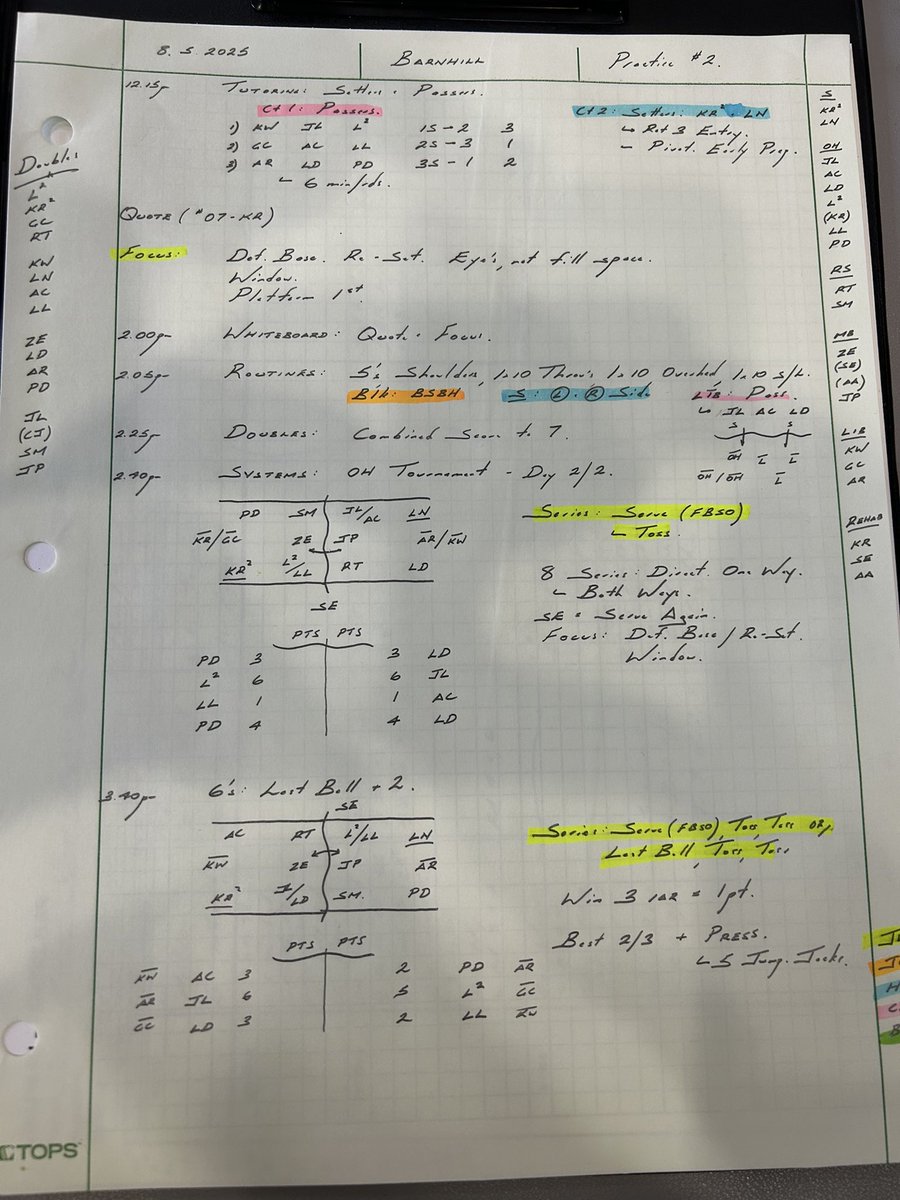 8. 5. 2025 BARNHILL Practice #2.
12.15p TUTORING: Setters + Passers.
Ct 1: Passers. Ct 2: Setters: KR² + LN
1) KW JL L² 1S - 2 3 ↳ Rot 3 Entry.
2) GC AC LL 2S - 3 1 - Pivot. Early Prep.
3) AR LD PD 3S - 1 2
↳ 6 min/rds.
QUOTE (#07-KR)
FOCUS: Def. Base. Re-Set. Eye's, not fill space.
Window.
Platform 1st.
2.00p WHITEBOARD: Quote + Focus.
2.05p ROUTINES: 5's Shoulders, 1x10 Throws 1x10 Overhead, 1x10 S/L.
Blk: BSBH S: L + R Side LTB: Pass.
↳ JL AC LD
2.25p DOUBLES: Combined Score to 7.
S S
OH L L
OH/OH L
2.40p SYSTEMS: OH Tournament - Day 2/2.
PD SM JL/AC LN
KR/GC ZE JP AR/KW
KR² L²/LL RT LD
SE
Series: Serve (FBSO)
↳ Toss
8 Series: Direct. One Way.
↳ Both Ways.
SE = Serve Again.
Focus: Def. Base / Re-Set.
Window.
PTS PTS
PD 3 3 LD
L² 6 6 JL
LL 1 1 AC
PD 4 4 LD
3.40p 6's: Last Ball + 2.
SE
AC RT L²/LL LN
KW ZE JP AR
KR² JL/LD SM. PD
Series: Serve (FBSO), Toss, Toss OR,
Last Ball, Toss, Toss
Win 3 = 1pt.
Best 2/3 + PRESS.
↳ 5 Jump. Jacks.
PTS PTS
KW AC 3 2 PD AR
AR JL 6 5 L² GC
GC LD 3 2 LL KW
Doubles
L²
KR²
GC
RT
KW
LN
AC
LL
ZE
LD
AR
PD
JL
(CJ)
SM
JP
S
KR²
LN
OH
JL
AC
LD
L²
(KR)
LL
PD
RS
RT
SM
MB
ZE
(SE)
(AA)
JP
LIB
KW
GC
AR
REHAB
KR
SE
AA
TOPS